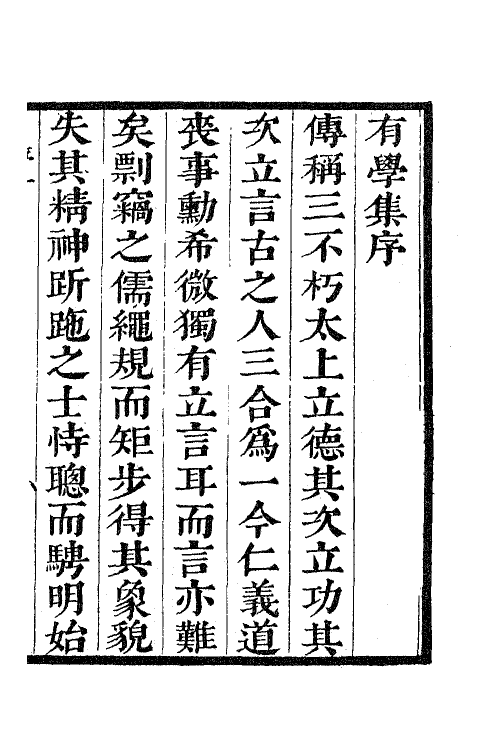 有學集序
傳稱三不朽太上立德其次立功其
次立言古之人三合爲一今仁義道
喪事勳希微獨有立言耳而言亦難
矣剽竊之儒繩規而矩步得其象貌
失其精神跅跑之士恃聰而騁明始